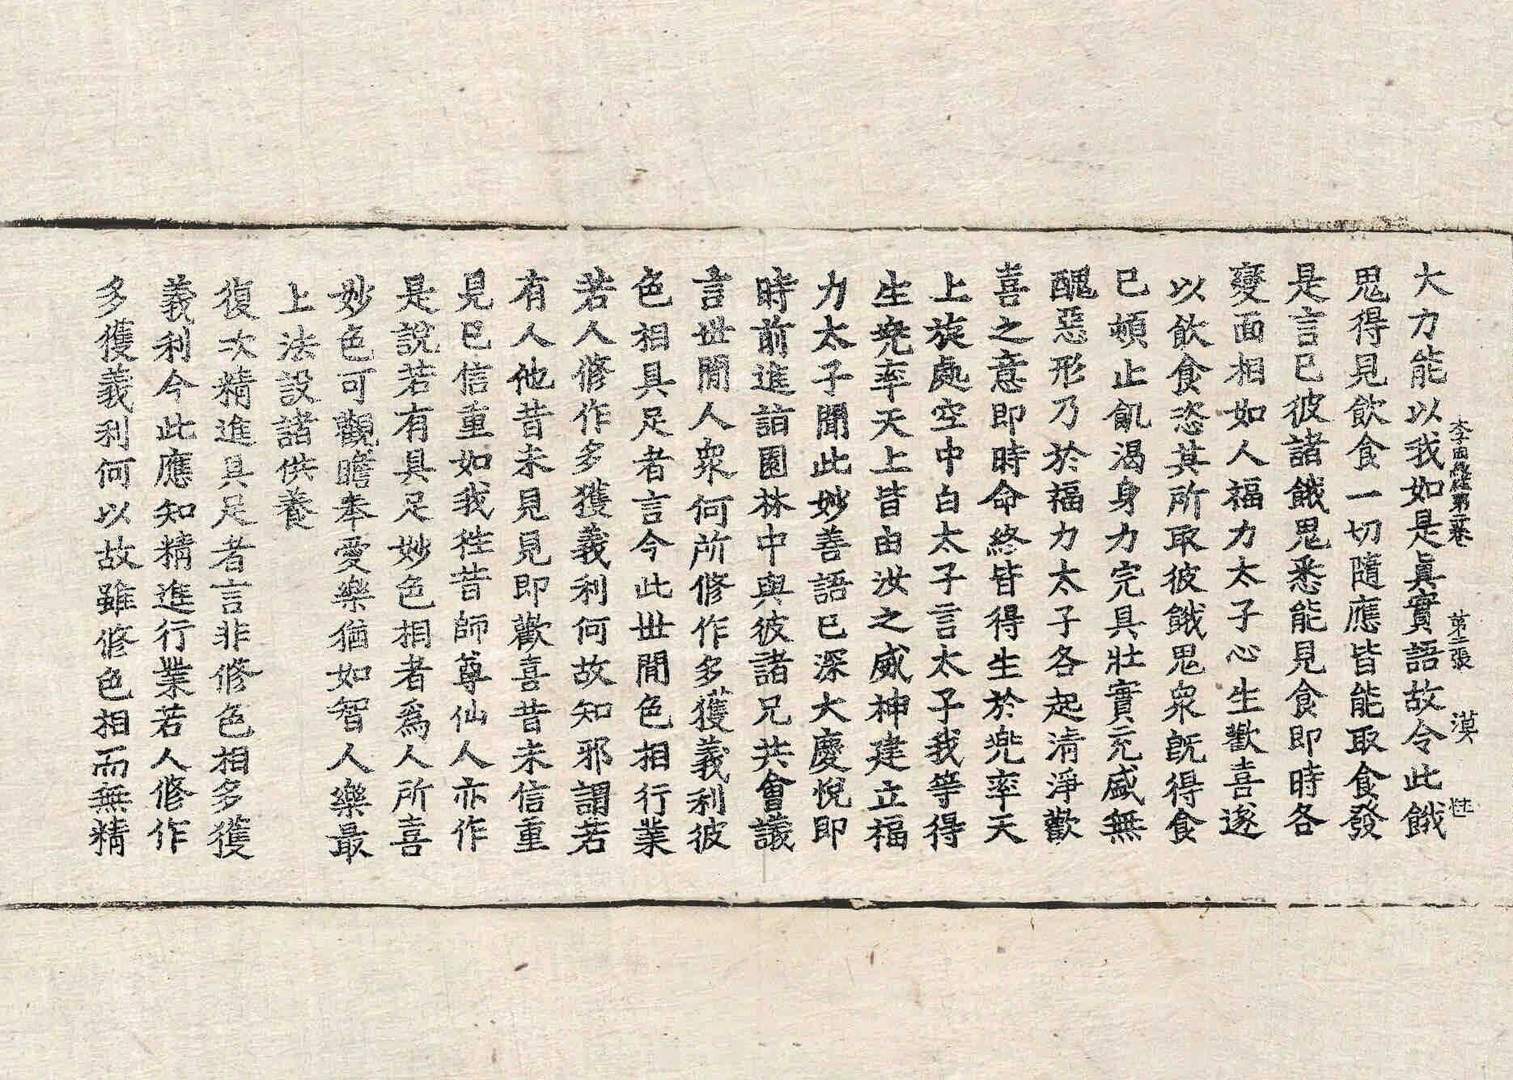 李因緣經第二卷 第二張 漠 性
大力能以我如是眞實語故令此餓
鬼得見飮食一切隨應皆能取食發
是言已彼諸餓鬼悉能見食即時各
變面相如人福力太子心生歡喜遂
以飮食恣其所取彼餓鬼衆旣得食
已頓止飢渴身力完具壯實充盛無
醜惡形乃於福力太子各起淸淨歡
喜之意即時命終皆得生於兜率天
上旋處空中白太子言太子我等得
生兜率天上皆由汝之威神建立福
力太子聞此妙善語已深大慶悅即
時前進詣園林中與彼諸兄共會議
言世閒人衆何所修作多獲義利彼
色相具足者言今此世閒色相行業
若人修作多獲義利何故知邪謂若
有人他昔未見見即歡喜昔未信重
見已信重如我徃昔師尊仙人亦作
是說若有具足妙色相者爲人所喜
妙色可觀瞻奉愛樂猶如智人樂最
上法設諸供養
復次精進具足者言非修色相多獲
義利今此應知精進行業若人修作
多獲義利何以故雖修色相而無精